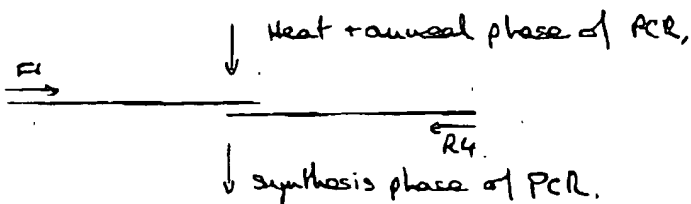 Heat + anneal phase of PCR,
F1
R4
synthesis phase of PCR.